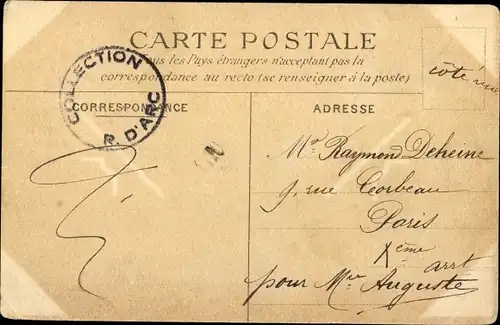 CARTE POSTALE
Tous les Pays étrangers n'acceptent pas la
correspondance au recto (se renseigner à la poste)
COLLECTION
R. D'ARC
côté
CORRESPONDANCE
ADRESSE
Mr Raymond Deheine
9, rue Corbeau
Paris
Xème
arrt
pour Mr Auguste